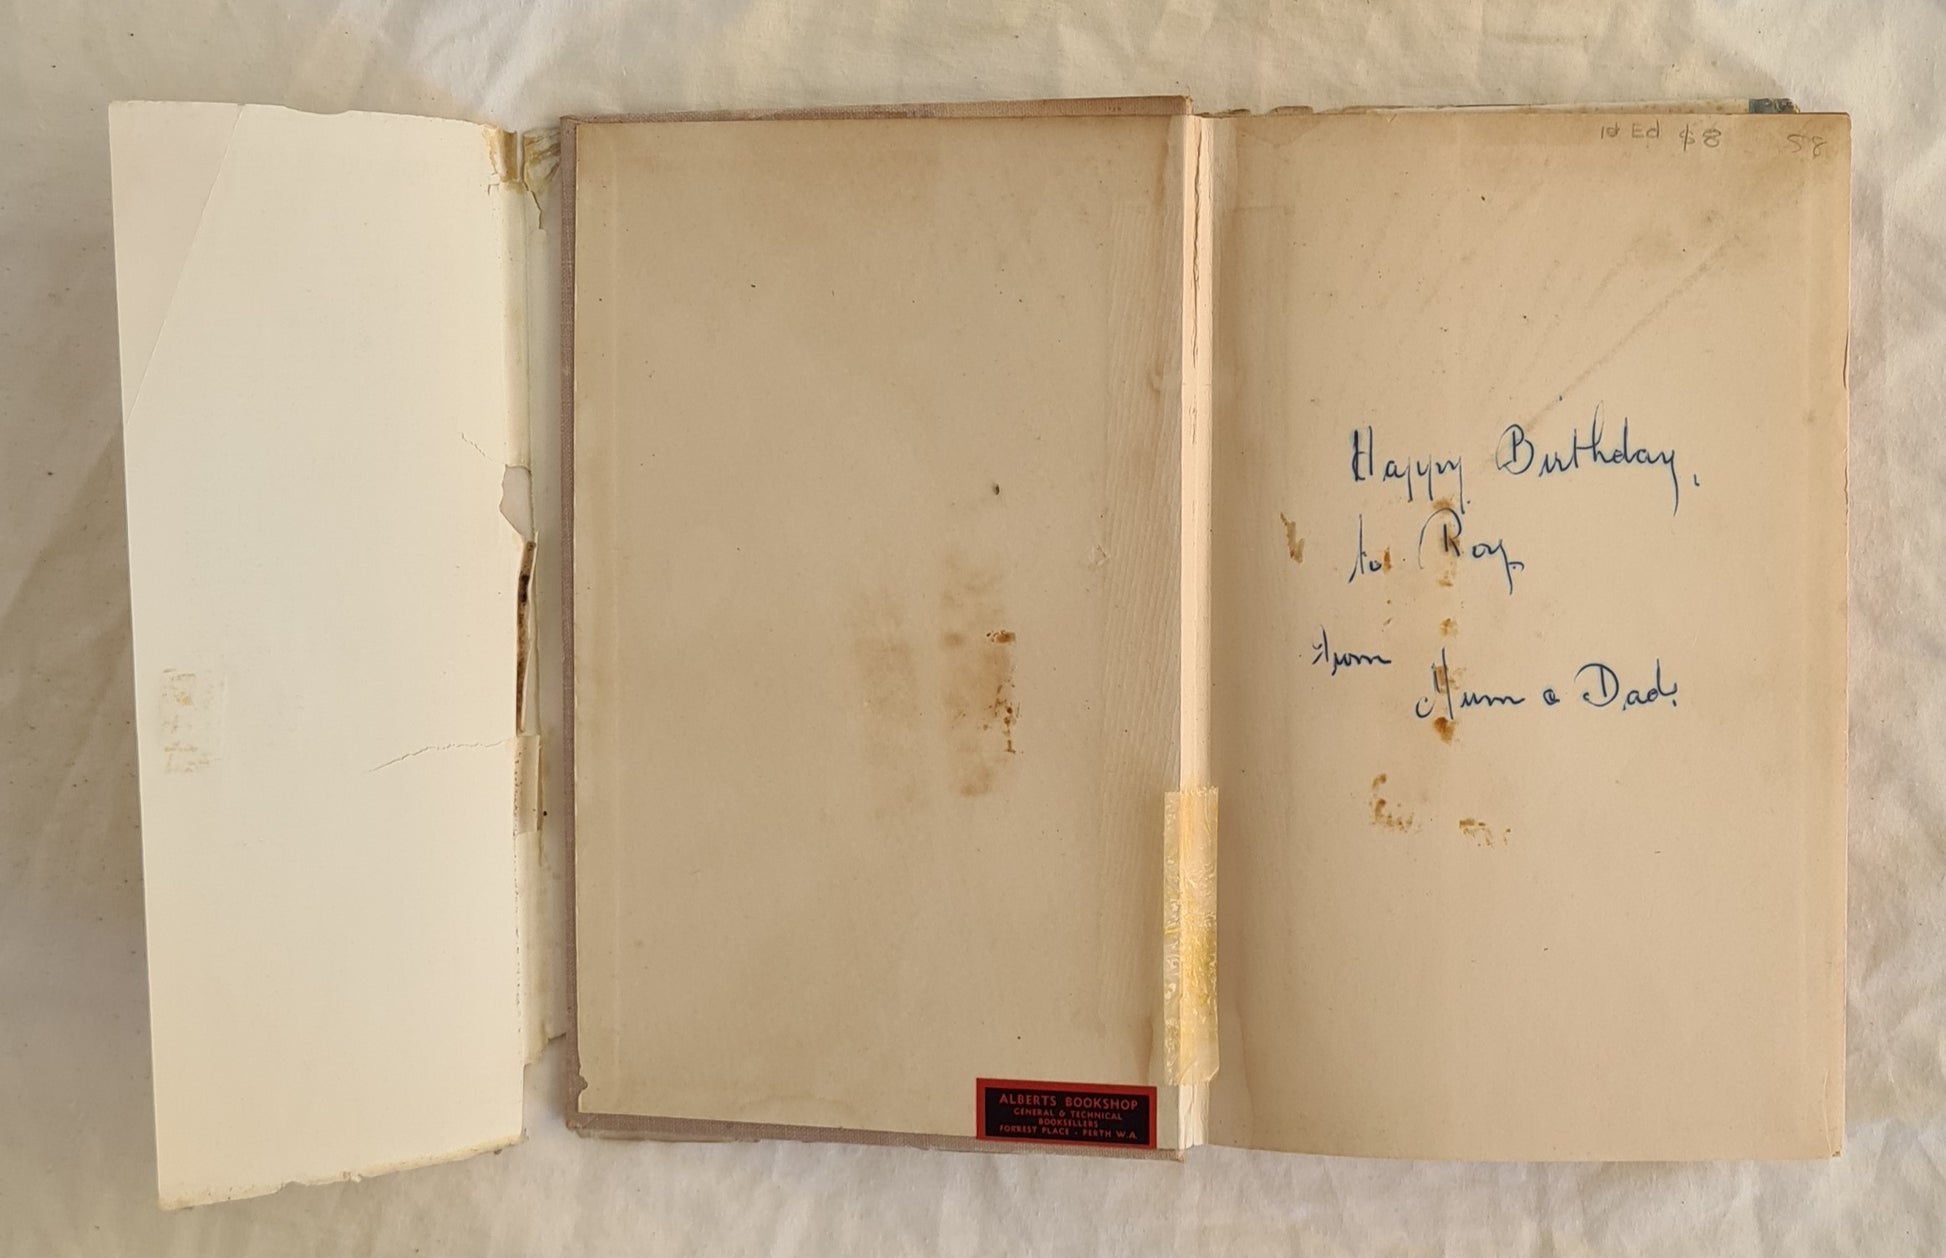 1st Ed $8 58
Happy Birthday,
to Roy.
from
Mum & Dad.
ALBERTS BOOKSHOP
GENERAL & TECHNICAL
BOOKSELLERS
FORREST PLACE - PERTH W.A.